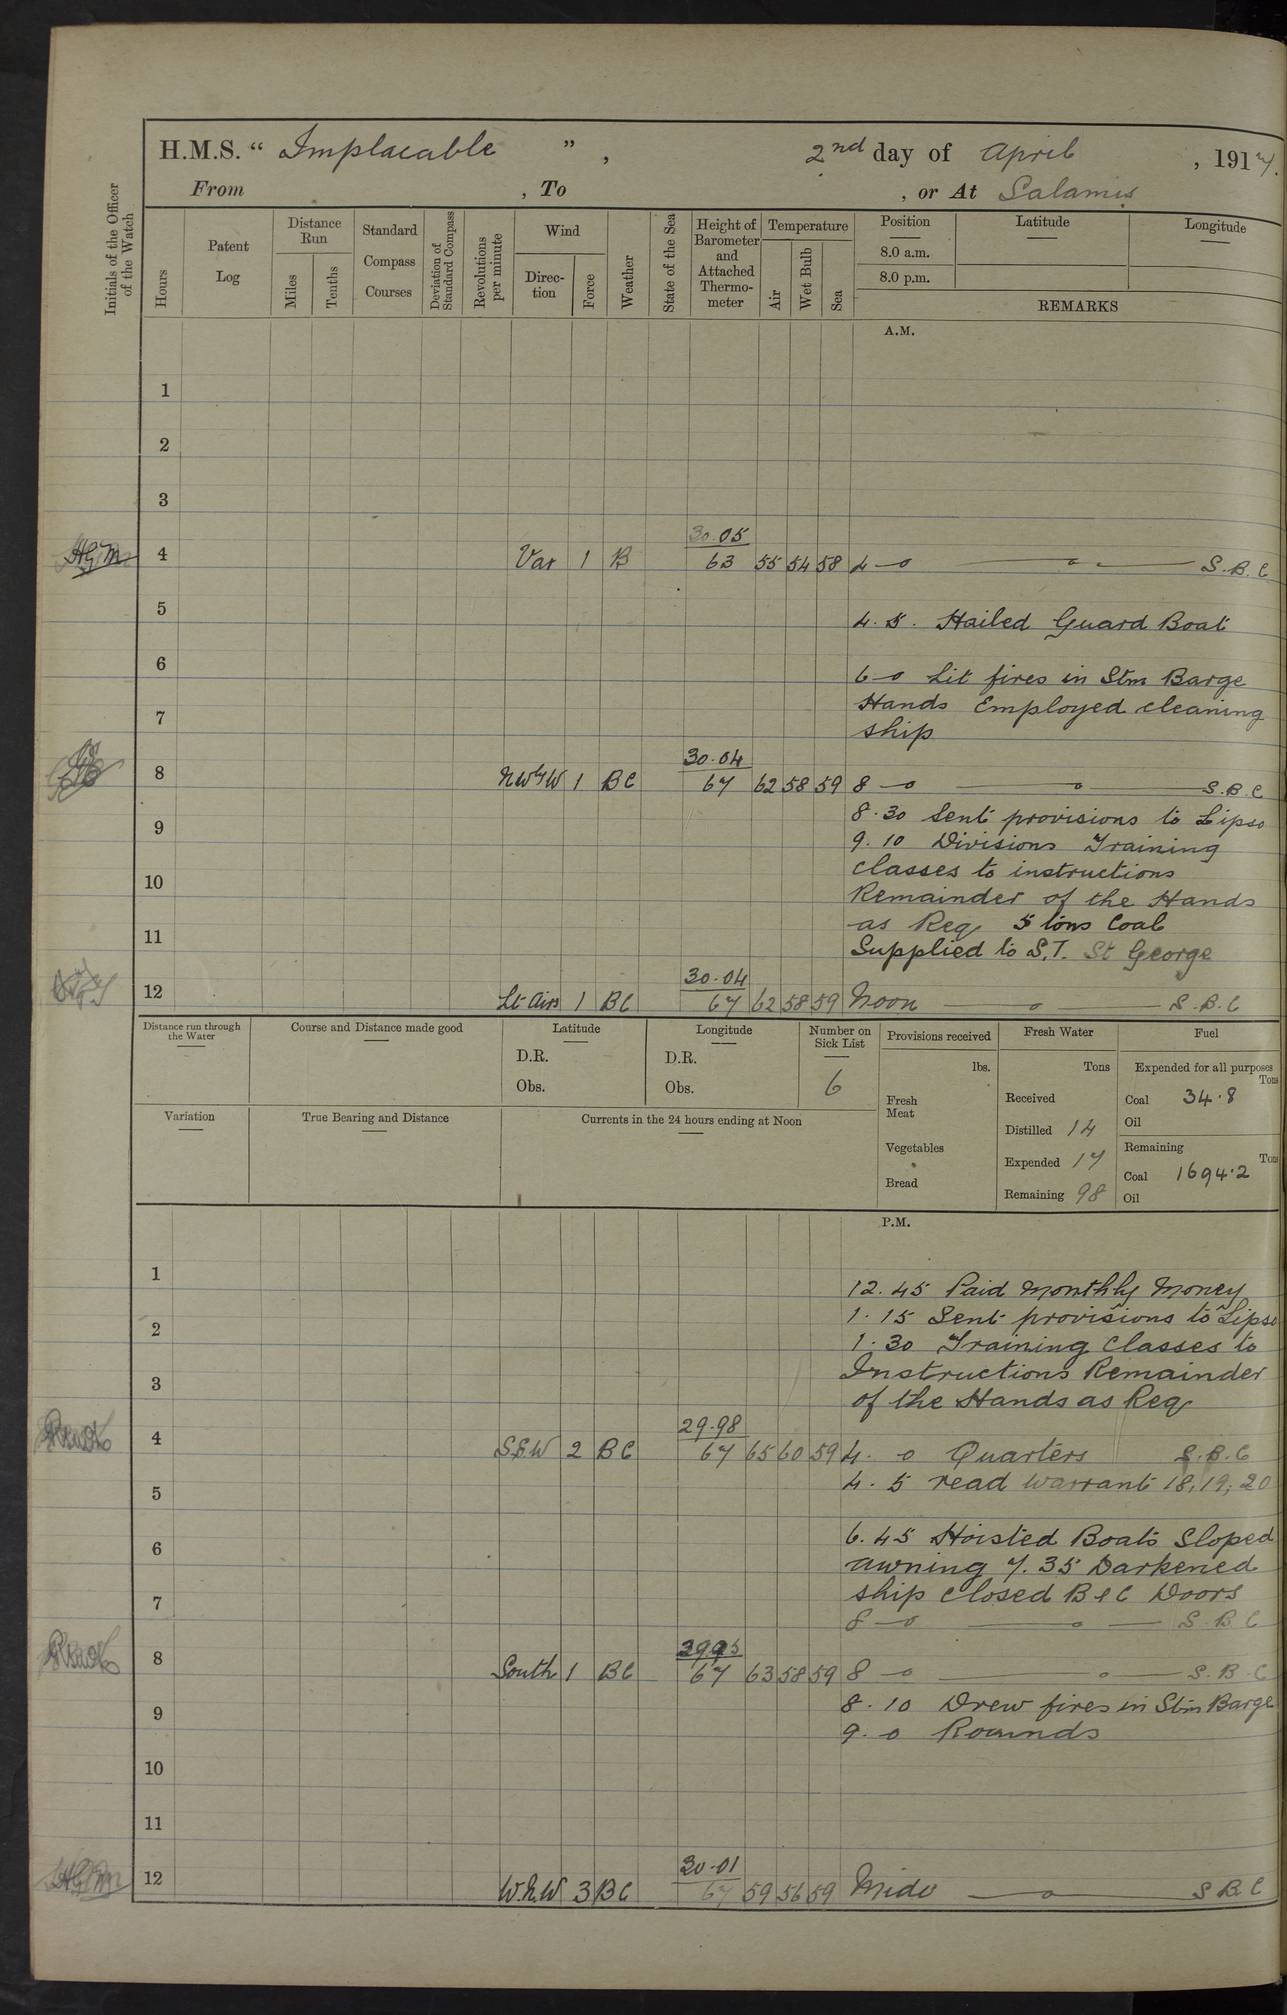 H.M.S. “ Implacable ” , 2nd day of April , 1917.
From , To , or At Salamis
Initials of the Officer of the Watch
Hours
Patent Log
Distance Run
Miles
Tenths
Standard Compass Courses
Deviation of Standard Compass
Revolutions per minute
Wind
Direction
Force
Weather
State of the Sea
Height of Barometer and Attached Thermometer
Temperature
Air
Wet Bulb
Sea
Position
8.0 a.m.
8.0 p.m.
Latitude
Longitude
REMARKS
A.M.
1
2
3
30.05
4 Var 1 B 63 55 54 58 4-0 S.B.C
5 4.5. Hailed Guard Boat
6 6-0 Lit fires in Stm Barge
Hands Employed cleaning
7 ship
30.04
8 NWbyW 1 BC 67 62 58 59 8-0 S.B.C
8.30 Sent provisions to Lipso
9 9.10 Divisions Training
classes to instructions
10 Remainder of the Hands
as Req 5 tons Coal
11 Supplied to S.T. St George
30.04
12 Lt Airs 1 BC 67 62 58 59 Noon S.B.C
Distance run through the Water
Course and Distance made good
Latitude
D.R.
Obs.
Longitude
D.R.
Obs.
Number on Sick List
6
Provisions received
lbs.
Fresh Meat
Vegetables
Bread
Fresh Water
Tons
Received
Distilled 14
Expended 17
Remaining 98
Fuel
Expended for all purposes
Tons
Coal 34.8
Oil
Remaining
Tons
Coal 1694.2
Oil
Variation
True Bearing and Distance
Currents in the 24 hours ending at Noon
P.M.
1 12.45 Paid Monthly Money
2 1.15 Sent provisions to Lipso
1.30 Training Classes to
3 Instructions Remainder
of the Hands as Req
29.98
4 S.E.W 2 BC 67 65 60 59 4.0 Quarters S.B.C
5 4.5 read warrant 18, 19, 20
6 6.45 Hoisted Boats Sloped
awning 7.35 Darkened
7 ship closed B & C Doors
8-0 S.B.C
29.95
8 South 1 BC 67 63 58 59 8-0 S.B.C
9 8.10 Drew fires in Stm Barge
9.0 Rounds
10
11
30.01
12 3 BC 67 59 56 59 Mido S B C